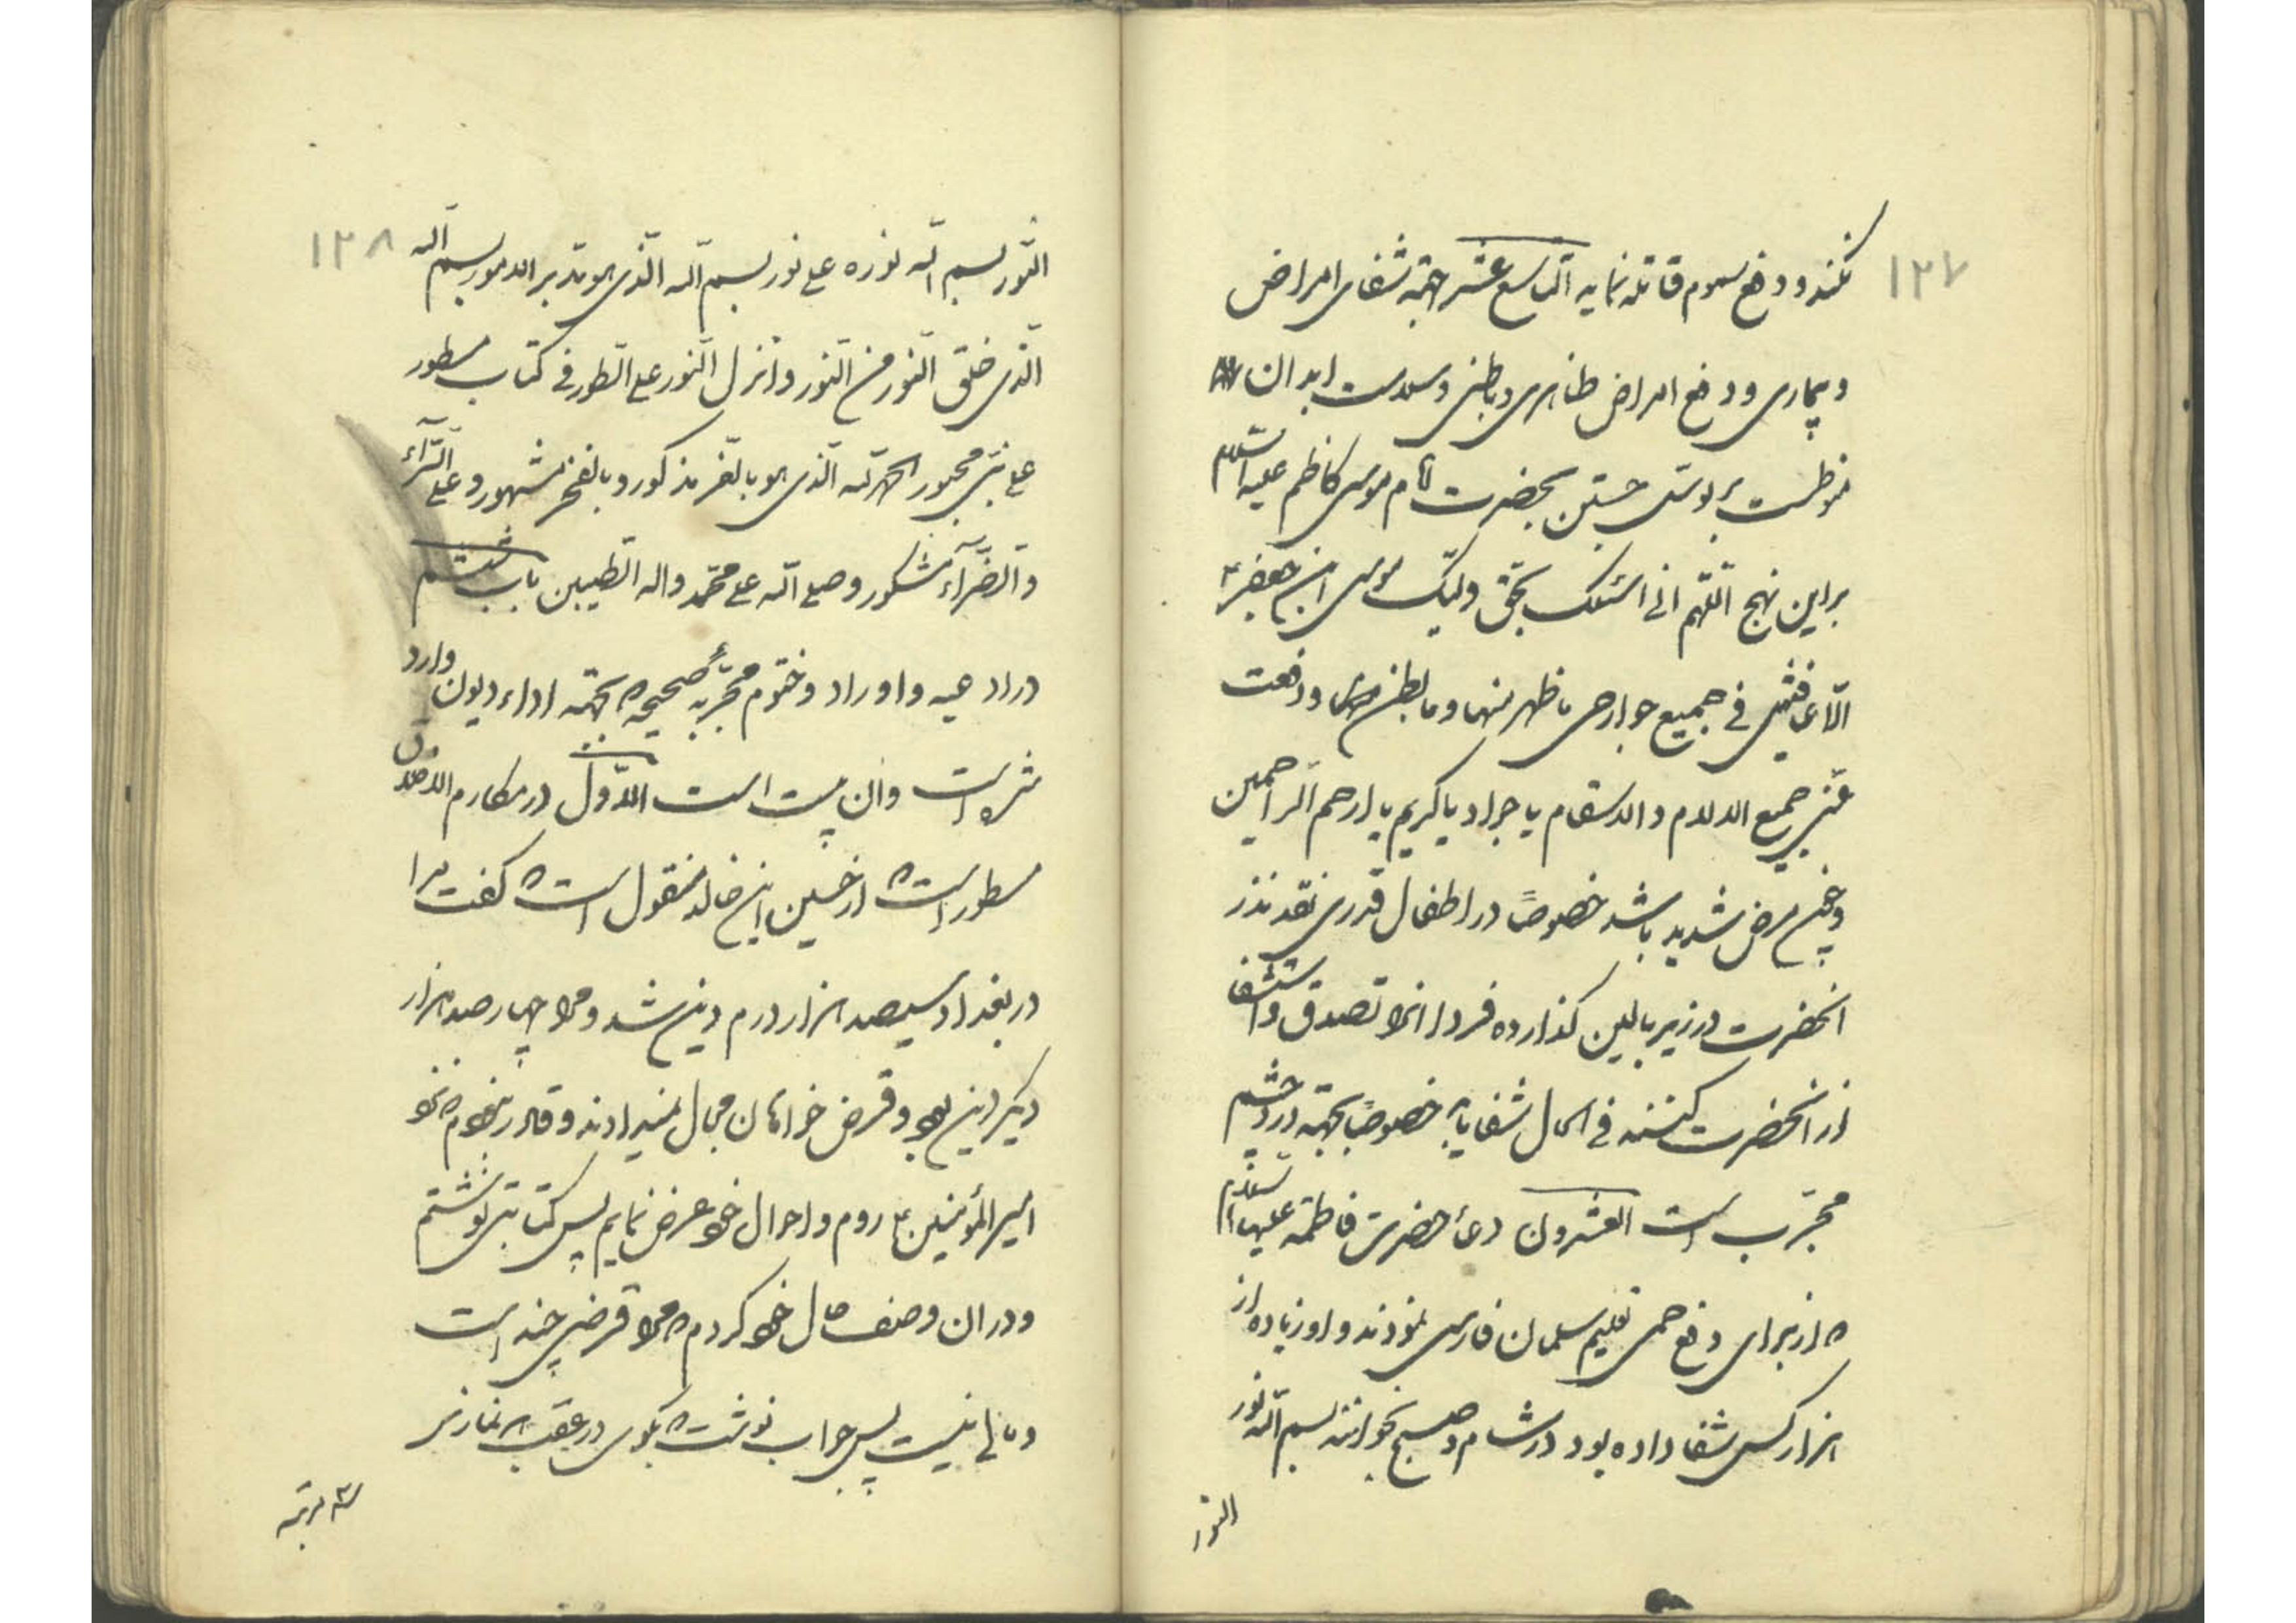 ۱۳۷
نکند و دفع سموم قاتله نماید التاسع عشر جهة شفای امراض
و بیماری و دفع امراض ظاهری و باطنی و سلامت ابدان
موظبت بر توسل جستن بحضرت امام موسی کاظم علیه السلام
براین نهج اللّهم انی اسئلک بحق ولیک موسی ابن جعفر ع
الّا عافیتنی فی جمیع جوارحی ما ظهر منها و ما بطن و دفعت
عنّی جمیع الالام و الاسقام یا جواد یا کریم یا ارحم الراحمین
و چون مرض شدید باشد خصوصاً در اطفال قدری نقد نذر
انحضرت در زیر بالین گذارده فردا انرا تصدق و استشفا
از انحضرت کنند فی الحال شفا یابد خصوصاً بجهة درد چشم
مجرّب است العشرون دعاء حضرت فاطمه علیها السلام
که از برای دفع حمی تعلیم سلمان فارسی نمودند و او زیاده از
هزار کس شفا داده بود در شام و صبح بخوانند بسم الله نور
النور
۱۳۸
النّور بسم الله نوره علی نور بسم الله الّذی هو مدبر الامور بسم الله
الّذی خلق النّور من النّور و انزل النّور علی الطّور فی کتاب مسطور
علی نبیّ محبور الحمد لله الّذی هو بالعّز مذکور و بالفخر مشهور و علی السّرآء
و الضّرآء مشکور و صلی الله علی محمّد و اله الطّیبین باب هشتم
در ادعیه و اوراد و ختوم مجرّبه صحیحه که بجهة اداء دیون وارد
شده است و ان بیست است الاوّل در مکارم الاخلاق
مسطور است که از حسین ابن خالد منقول است که گفت مرا
در بغداد سیصد هزار درم دین شد و مرا چهارصد هزار
دیگر دین بود و قرض خواهان مجال نمیدادند و قادر نبودم که نزد
امیر المؤمنین ع روم و احوال خود عرض نمایم پس کتابتی نوشتم
و در ان وصف حال خود کردم که مرا قرضی چند است
و مالی نیست پس جواب نوشت که بگوی در عقب هر نمازی
سه مرتبه